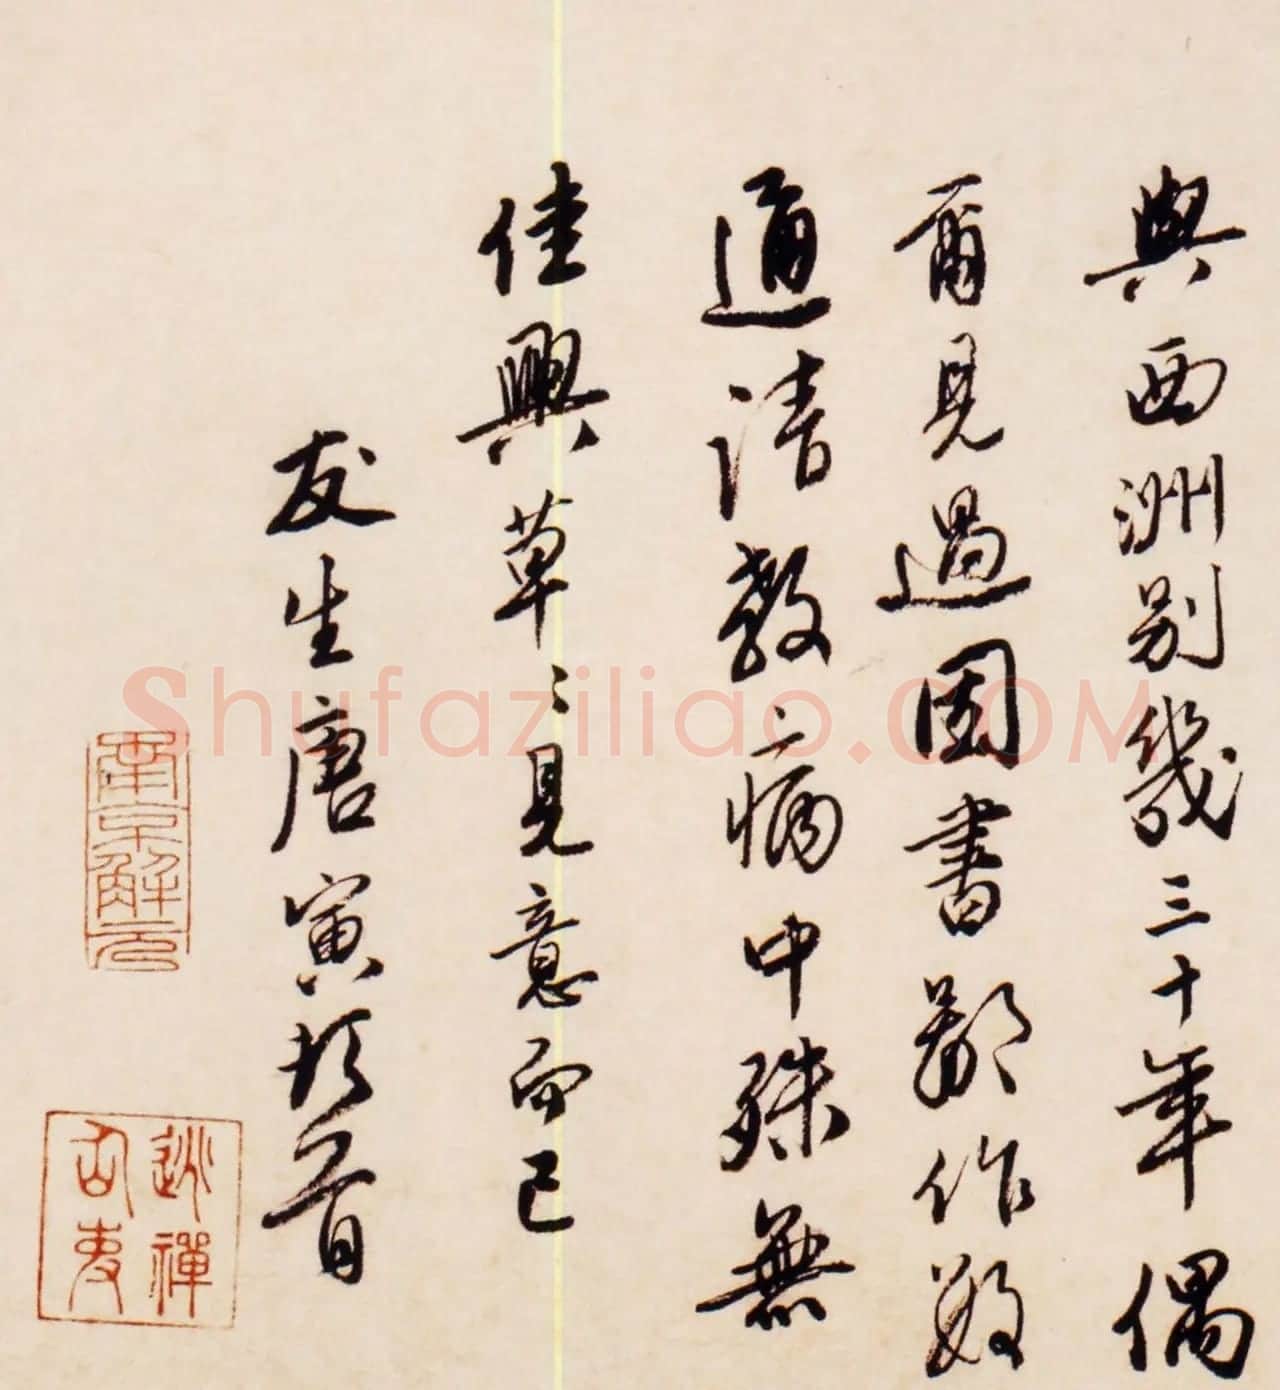 與西洲別幾三十年偶
爾見過因書鄙作數
通請教病中殊無
佳興草〻見意而已
友生唐寅頓首
南京解元
逃禪仙吏
Shufaziliao.COM